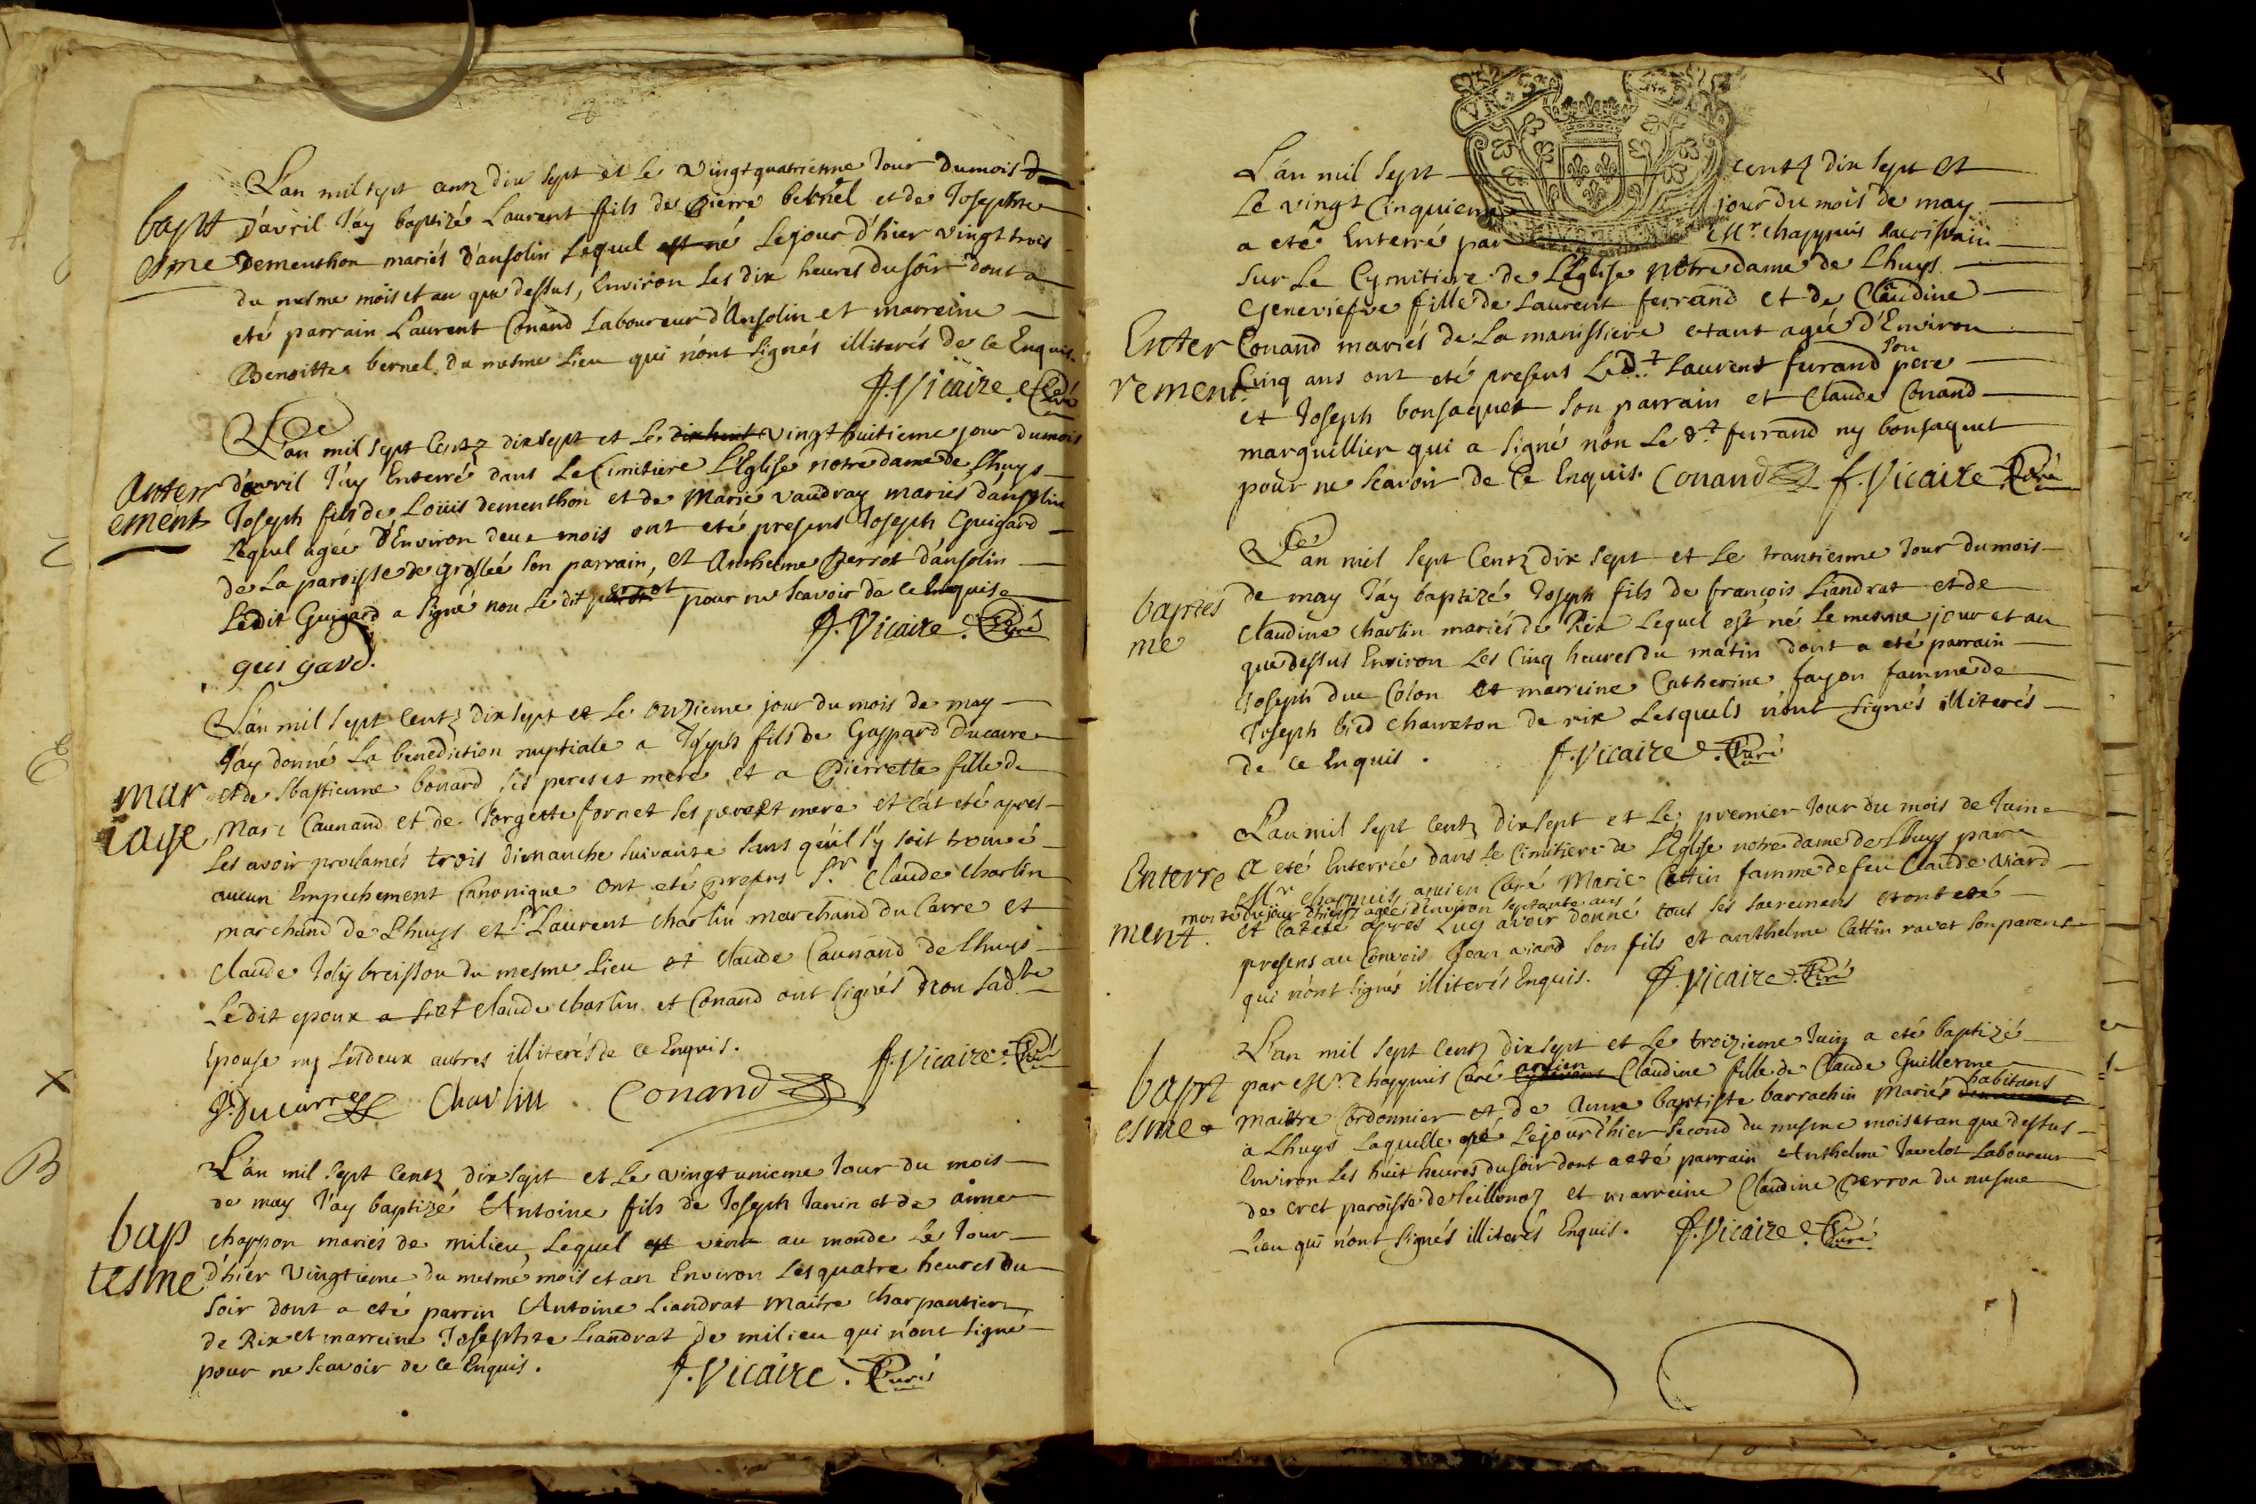 L'an mil sept centz dix sept et le vingt quatrieme Jour du mois
bapt
esme
D'avril J'ay baptizé Laurent fils de Pierre bernel et de Josephte
Dementhon mariés d'ansolin Lequel est né Le jour d'hier vingt trois
du mesme mois et an que dessus, Environ Les dix heures du soir dont a
eté parrain Laurent Conand Laboureur d'Ansolin et marreine
Benoitte bernel du mesme Lieu qui n'ont signés illiterés de ce Enquis.
f. Vicaire. Curé
L'an mil sept Centz dix sept et Le dixhuit vingt huitieme jour du mois
Anterr
ement
d'avril J'ay Enterré dans Le Cimitiere L'Eglise notre dame de Lhuys
Joseph fils de Loüis dementhon et de Marie vaudray mariés d'ansolin
Lequel agée d'Environ deux mois ont eté presens Joseph Guigard
de La paroisse de groslée son parrain, et Anthelme Perrot d'ansolin
Ledit Guigard a signé non Le dit perrot pour ne scavoir de ce Enquis
f. Vicaire. Curé
gui gard.
L'an mil sept Centz dix sept et Le onzieme jour du mois de may
mar
iage
J'ay donné La benediction nuptiale a Joseph fils de Gaspard Ducarre
et de Sbastienne bonard ses peres et mere et a Pierrette fille de
Marc Caunand et de Jorgette fornet ses pere et mere et c'at eté apres
Les avoir proclamés trois dimanche suivante sans qu'il s'y soit trouvé
aucun Empechement Canonique ont eté presens Sr. Claude Charlin
marchand de Lhuys et Sr Laurent Charlin marchand du Carre et
Claude Joly breisson du mesme Lieu et Claude Caunand de Lhuys
Ledit epoux a set Claude Charlin et Conand ont signés non Ladte
Epouse ny Lesdeux autres illiterés de ce Enquis.
f. Vicaire. Curé
J. Ducarre Charlin Conand
L'an mil sept Centz dix sept et Le vingt unieme Jour du mois
bap
tesme
de may J'ay baptizé Antoine fils de Joseph Janin et de aime
chappon mariés de milieu Lequel est venu au monde Le Jour
d'hier vingtieme du mesme mois et an Environ Les quatre heures du
soir dont a eté parrin Antoine Liandrat Maitre Charpantier
de Rix et marreine Josephte Liandrat de milieu qui n'ont signe
pour ne scavoir de ce Enquis.
f. Vicaire. Curé
L'an mil sept centz dix sept et
Le vingt Cinquieme jour du mois de may
a eté Enterré par Mr. chappuis Sacristain
sur Le Cymitiere de L'Eglise Nôtre dame de Lhuys
Genevieve fille de Laurent ferrand et de Claudine
Enter
rement
Conand mariés de La manissiere etant agée d'Environ
Cinq ans ont eté presens Le dt Laurent ferrand son pere
et Joseph bonsaquet son parrain et Claude Conand
marguillier qui a signé non Le dt ferrand ny bonsaquet
pour ne scavoir de ce Enquis. Conand f. Vicaire Curé
L'an mil sept Centz dix sept et Le trantieme Jour du mois
baptes
me
de may J'ay baptizé Joseph fils de françois Liandrat et de
Claudine charlin mariés de Rix Lequel est né Le mesme jour et an
que dessus Environ Les Cinq heures du matin dont a eté parrain
Joseph du Colon et marreine Catherine fayon famme de
Joseph bied chareton de rix Lesquels n'ont signés illiterés
de ce Enquis. f. Vicaire. Curé
L'an mil sept Centz dix sept et Le premier Jour du mois de Juin
Enterre
ment.
A eté Enterrée dans Le Cimitiere de L'Eglise notre dame de Lhuys par
Mr chappuis ancien Curé Marie Cattin famme de feu Claude viard
morte du jour d'hier agée d'Environ septante ans
et c'at eté apres Luy avoir donné tous ses sacremens et ont eté
presens au Convois Jean viard son fils et anthelme Cattin ravet son parent
qui n'ont signés illiterés Enquis. f. Vicaire. Curé
L'an mil sept Centz dix sept et Le troizieme Juin a eté baptizé
bapt
esme
par Mr. chappuis Curé ancien Claudine fille de Claude Guillerme
maitre Cordonnier et de Anne baptiste barrachin Mariés habitans
a Lhuys Laquelle né Le jour d'hier second du mesme mois et an que dessus
Environ Les huit heures du soir dont a eté parrain Anthelme Javelot Laboureur
de cret paroisse de seillonaz et marreine Claudine Perron du mesme
Lieu qui n'ont signés illiterés Enquis. f. Vicaire. Curé